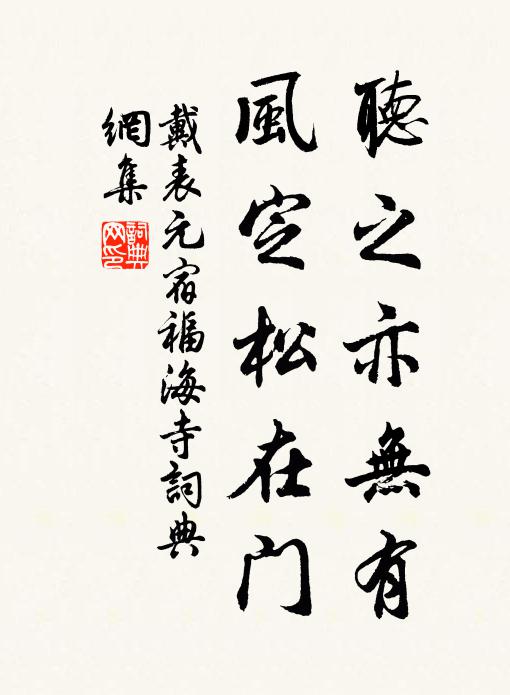 聽之亦無有
風定松在門
戴表元宿福海寺詞典
網集
詞典
网印